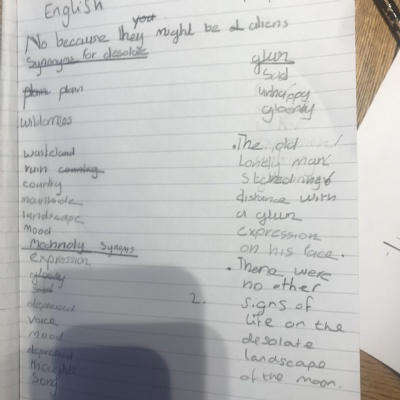 English
you
No because they might be d aliens
Synonyms for desolate
plain plain
wilderness
wasteland
ruin country
country
landscape
mood
expression
gloomy
sad
depressed
voice
mood
depressed
thoughts
song
glum
sad
unhappy
gloomy
.The old
lonely man
distance with
a glum
expression
on his face.
. There were
2. no other
signs of
life on the
desolate
landscape
of the moon.